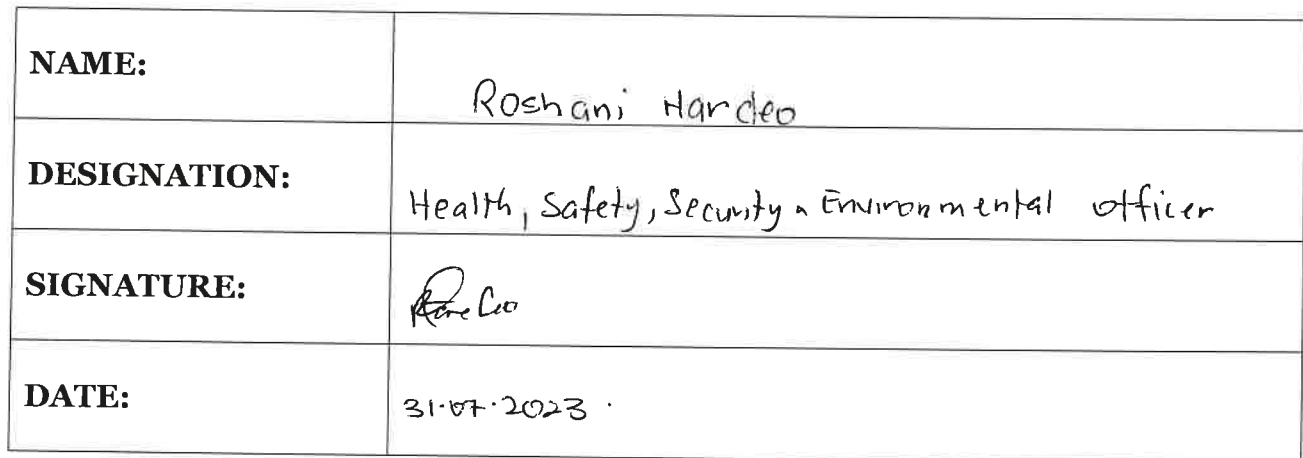 NAME:
Roshani Hardeo
DESIGNATION:
Health, Safety, Security & Environmental Officer
SIGNATURE:
DATE:
31.07.2023.